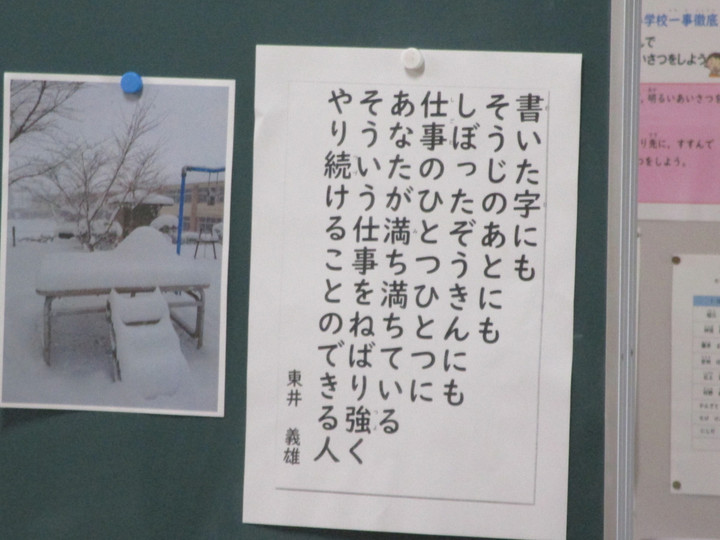 書いた字にも
そうじのあとにも
しぼったぞうきんにも
仕事のひとつひとつに
あなたが満ち満ちている
そういう仕事をねばり強く
やり続けることのできる人
東井 義雄
学校一事徹底
で
いさつをしよう
、明るいあいさつを
り先に、すすんで
つをしよう。